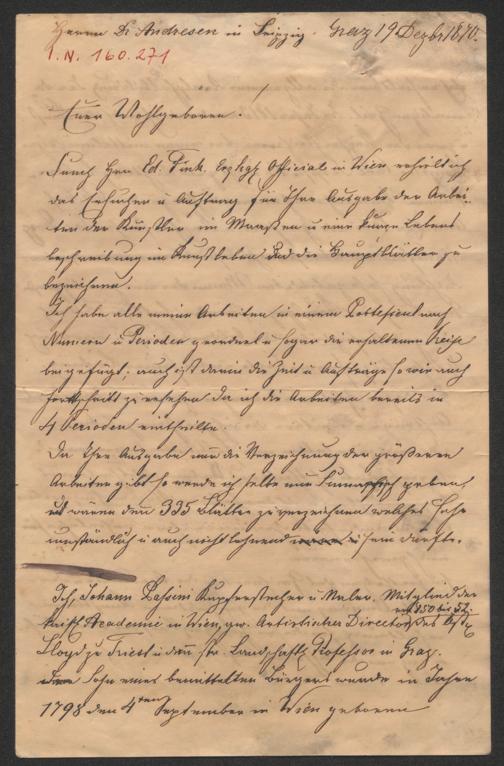 Herrn Dr Andresen in Leipzig. Graz 19 Dezbr 1870.
I.N. 160.271
Euer Wohlgeboren!
Durch Hrn Ed. Official in Wien erhielt ich
das Ersuchen u Auftrag für Ihre Ausgabe der Arbei-
ten der Künstler im u eine kurze Lebens
beschreibung im Kunstleben und die Hauptblätter zu
bezeichnen.
Ich habe alle meine Arbeiten in einem Portefeuil nach
Numern u Perioden geordnet u sogar die erhaltenen Preise
beigefügt; auch ist darin die Zeit u Aufträge so wie auch
Fortschritt zu ersehen da ich die Arbeiten bereits in
4 Perioden eintheilte.
Da Ihre Ausgabe nur die Verzeichnung der größeren
Arbeiten gibt so werde ich selbe nur geben,
es wären denn 335 Blätter zu verzeichnen welches sehr
umständlich u auch nicht lohnend sein dürfte.
Ich, Johann Passini Kupferstecher u Maler. Mitglied der
von 850 bis 52
Academie in Wien, gew. Artistischer Director des Öst.
Lloyd zu Triest u dann st. Landschaftl. Professor in Graz.
Sohn eines bemittelten Bürgers wurde im Jahre
1798 den 4ten September in Wien geboren